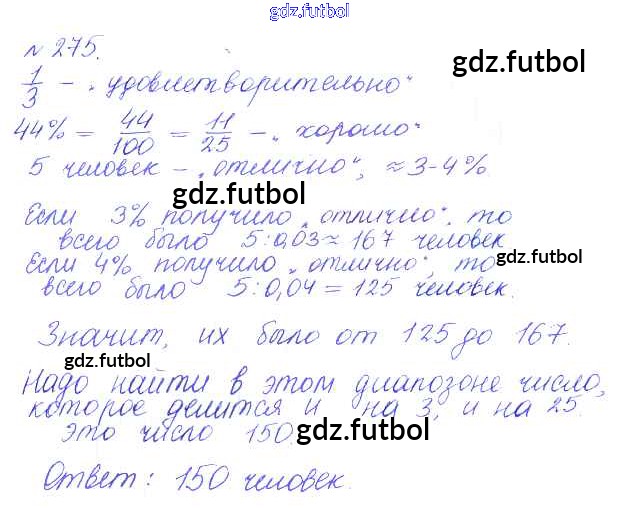 gdz.futbol
№ 275.
gdz.futbol
1/3 – „удовлетворительно“
44% = 44/100 = 11/25 – „хорошо“
5 человек – „отлично“, ≈ 3-4%.
gdz.futbol
Если 3% получило „отлично“, то
всего было 5:0,03 ≈ 167 человек
Если 4% получило „отлично“, то
gdz.futbol
всего было 5:0,04 = 125 человек.
Значит, их было от 125 до 167.
gdz.futbol
Надо найти в этом диапозоне число,
которое делится и на 3, и на 25.
это число 150.
gdz.futbol
Ответ: 150 человек.
gdz.futbol